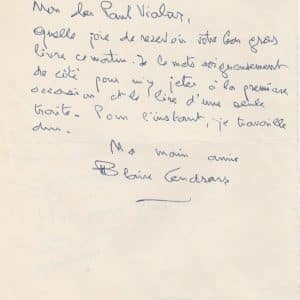 Mon bon Paul Vialar,
Quelle joie de recevoir votre bon gros
livre ce matin. Je le mets soigneusement
de côté pour m'y jeter à la première
occasion et le lire d'une seule
traite. Pour l'instant, je travaille
dur.
Ma main amie
Blaise Cendrars